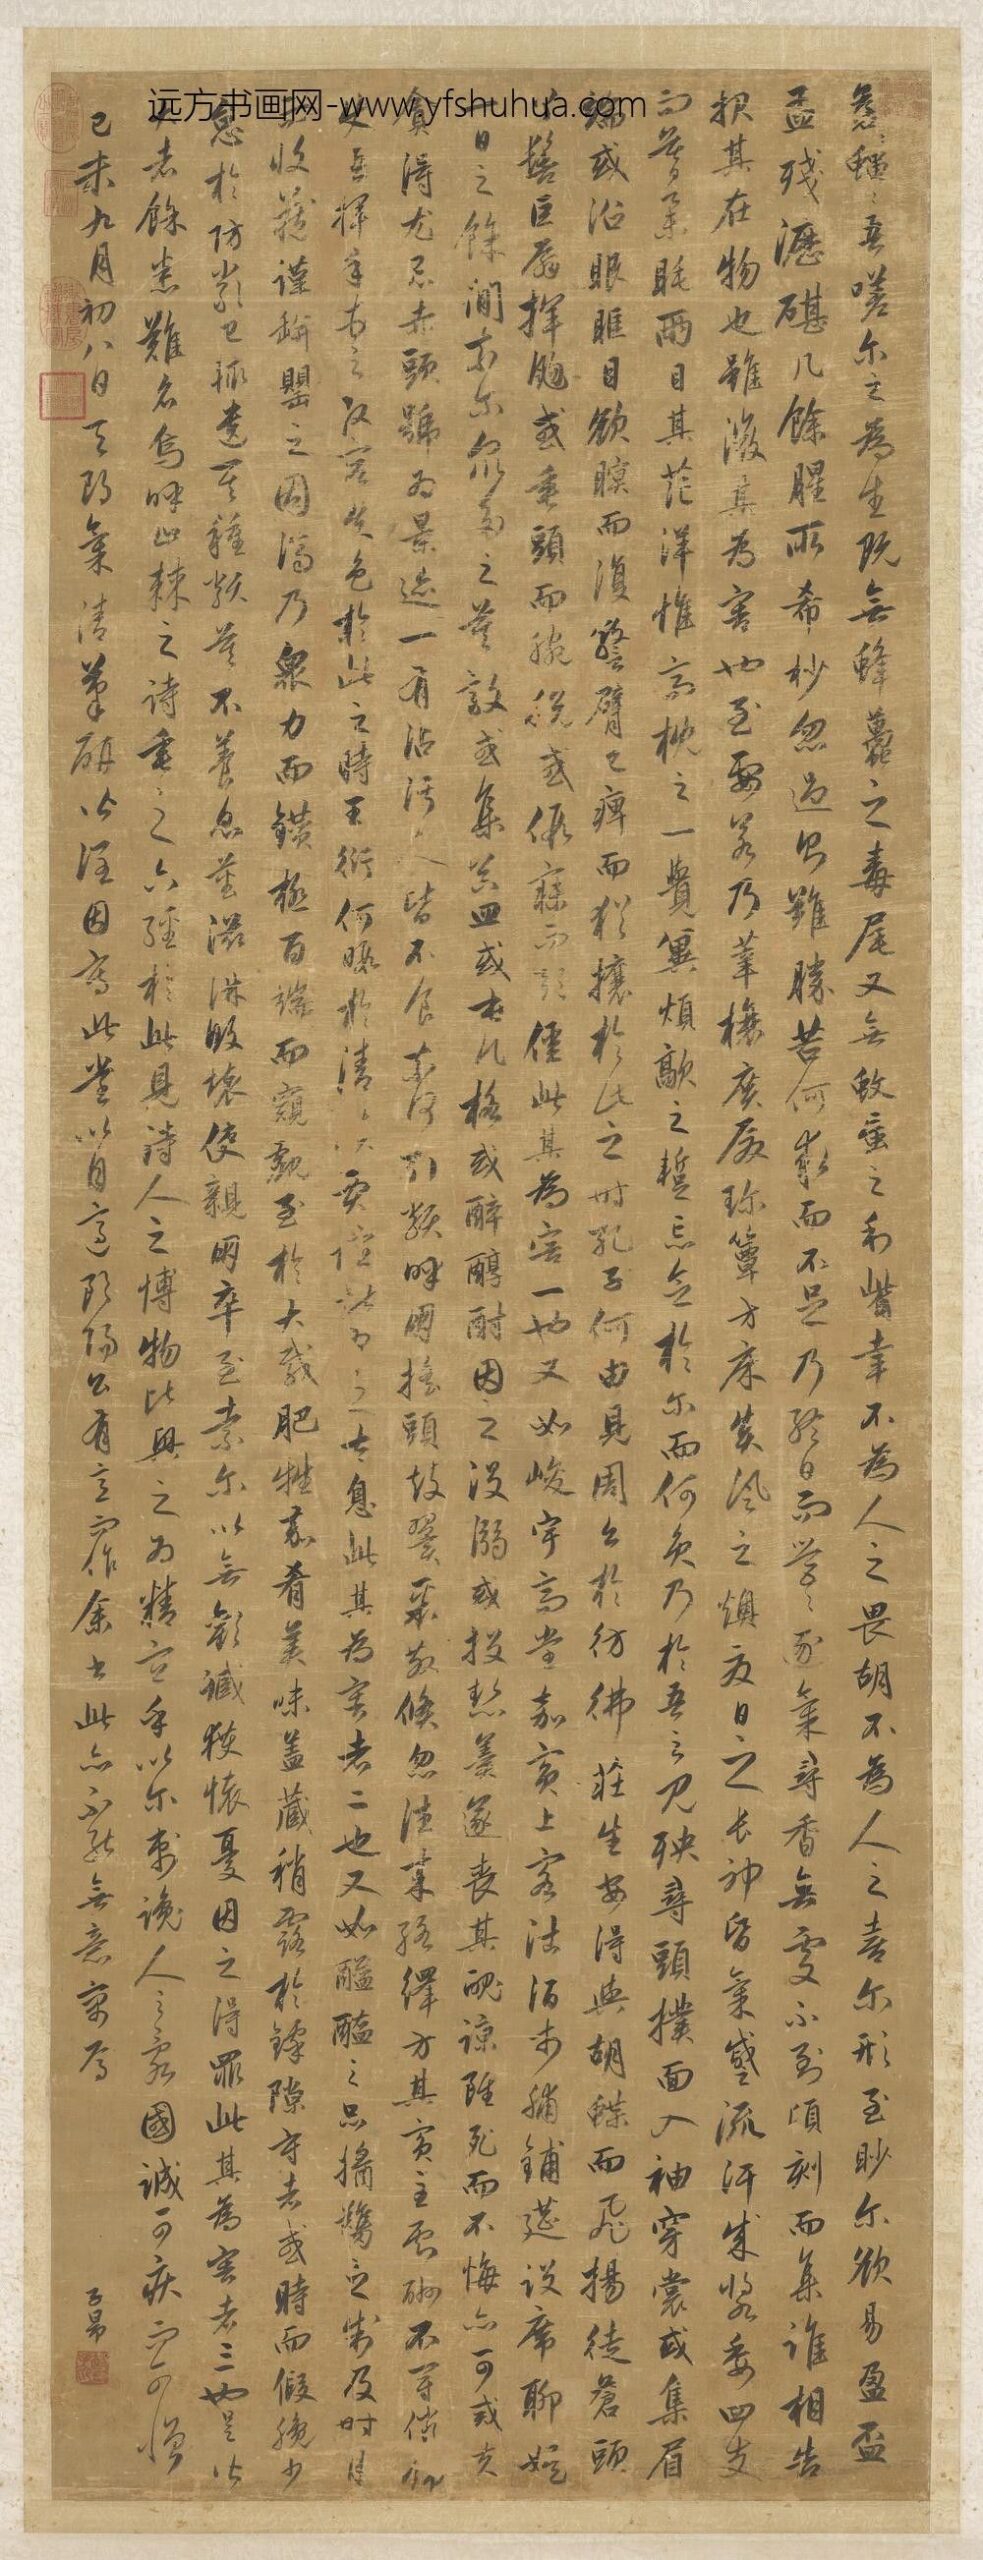 远方书画网-www.yfshuhua.com
蒼蠅蒼蠅吾嗟尔之為生既無蜂蠆之毒尾又無蚊蝱之利觜幸不為人之畏胡不為人之喜尔形至眇尔欲易盈盃
盂殘瀝碪几餘腥所希杪忽過則難勝苦何求而不足乃終日而營營逐氣尋香無處不到頃刻而集誰相告
報其在物也雖微其為害也至要若乃華榱廣廈珍簟方床炎風之燠夏日之長神昏氣蹙流汗成漿委四支
而莫舉眊兩目其茫洋惟高枕之一覺冀煩歊之暫忘念於尔而何負乃於吾之見殃尋頭撲面入袖穿裳或集眉
端或沿眼眶目欲瞑而復警臂已痺而猶攘於此之時孔子何由見周公於彷彿莊生安得與胡蝶而飛揚徒蒼頭
丫髻巨扇揮颺或垂頭而腕脱或假寐而顛僵此其為害一也又如峻宇高堂嘉賓上客沽酒市脯鋪筵設席聊娱
一日之餘閒奈尔衆多之莫敵或集器皿或屯几格或醉醇酎因之没溺或投熱羹遂喪其魄諒雖死而不悔亦可戒夫
貪得尤忌赤頭號為景迹一有沾污人皆不食奈何引類呼朋摇頭鼓翼聚散倏忽往來絡繹方其賓主獻酬衣冠儼飾
使吾揮手頓足改容失色於此之時王衍何暇於清談賈誼堪為之太息此其為害者二也又如醯醢之品醬臡之制及時月
而收藏謹缾罌之固濟乃衆力而鑽極百端而窺覬至於大胾肥牲嘉肴美味蓋藏稍露於罅隙守者或時而假寐少
怠於防嚴已輒遺其種類莫不養息蕃滋淋敗壞使親朋卒至索尔以無歡臧獲懷憂因之得罪此其為害者三也是皆
大者餘悉難名嗚呼止棘之詩垂之六經於此見詩人之博物比興之為精宜乎以尔刺讒人之亂國誠可疾而可憎
己未九月初八日天朗氣清筆研皆潤因寫此卷以自適歐陽公有言 余書此亦不能無意寓焉
子昂